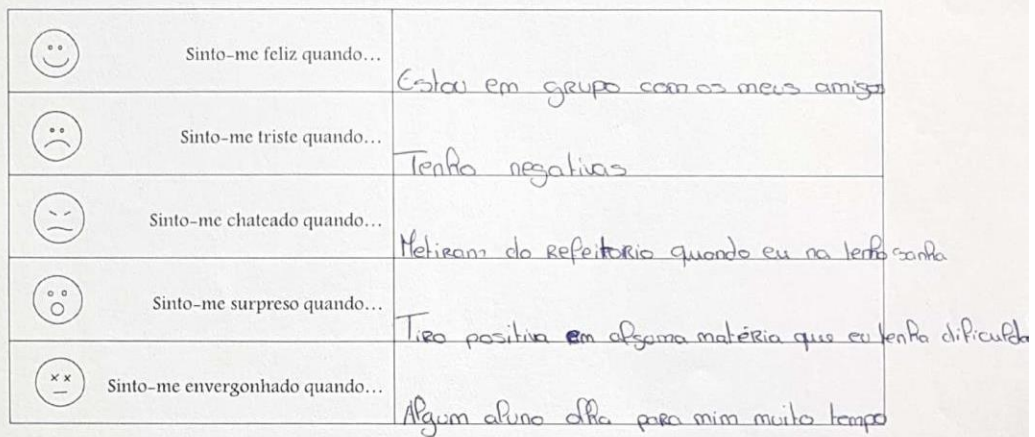 Sinto-me feliz quando...
Estou em grupo com os meus amigos
Sinto-me triste quando...
Tenho negativas
Sinto-me chateado quando...
Metiram do Refeitorio quando eu na tenho sanha
Sinto-me surpreso quando...
Tiro positiva em algoma matéria que eu tenho dificulda
Sinto-me envergonhado quando...
Algum aluno olha para mim muito tempo